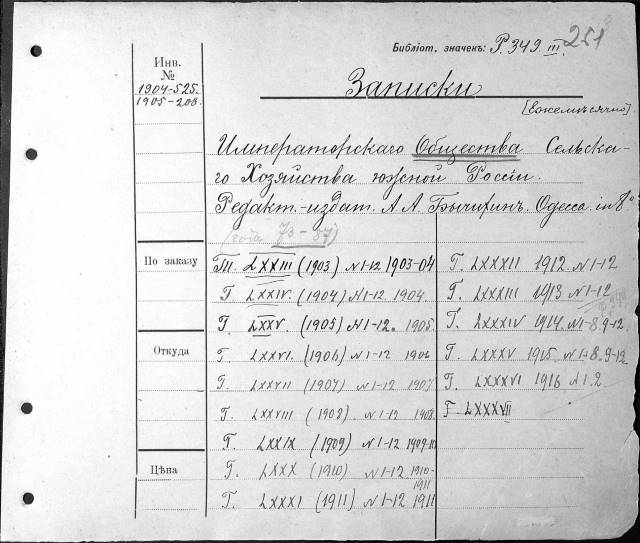 251
Библіот. значекъ: Р. 349 III.
Инв.
№
1904-525.
1905-208.
Записки
[Ежемѣсячно].
Императорскаго Общества Сельска-
го Хозяйства южной Россіи.
Редакт.-издат. А. А. Бычихинъ. Одесса. in 8°
(года 73-87)
По заказу
Откуда
Цѣна
LXXIII (1903) N 1-12 1903-04
Г. LXXIV. (1904) N 1-12. 1904.
Г. LXXV. (1905) N 1-12. 1905.
Г. LXXVI. (1906) N 1-12 1906
Г. LXXVII (1907) N 1-12 1907
Г. LXXVIII (1908) N 1-12 1908.
Г. LXXIX (1909) N 1-12 1909-10
Г. LXXX (1910) N 1-12 1910-
1911
Г. LXXXI (1911) N 1-12 1911
Г. LXXXII 1912. N 1-12
Г. LXXXIII 1913 N 1-12
Г. LXXXIV 1914. N 1-8. 9-12.
Г. LXXXV 1915. N 1-8. 9-12
Г. LXXXVI 1916 N 1. 2
Г LXXXVII